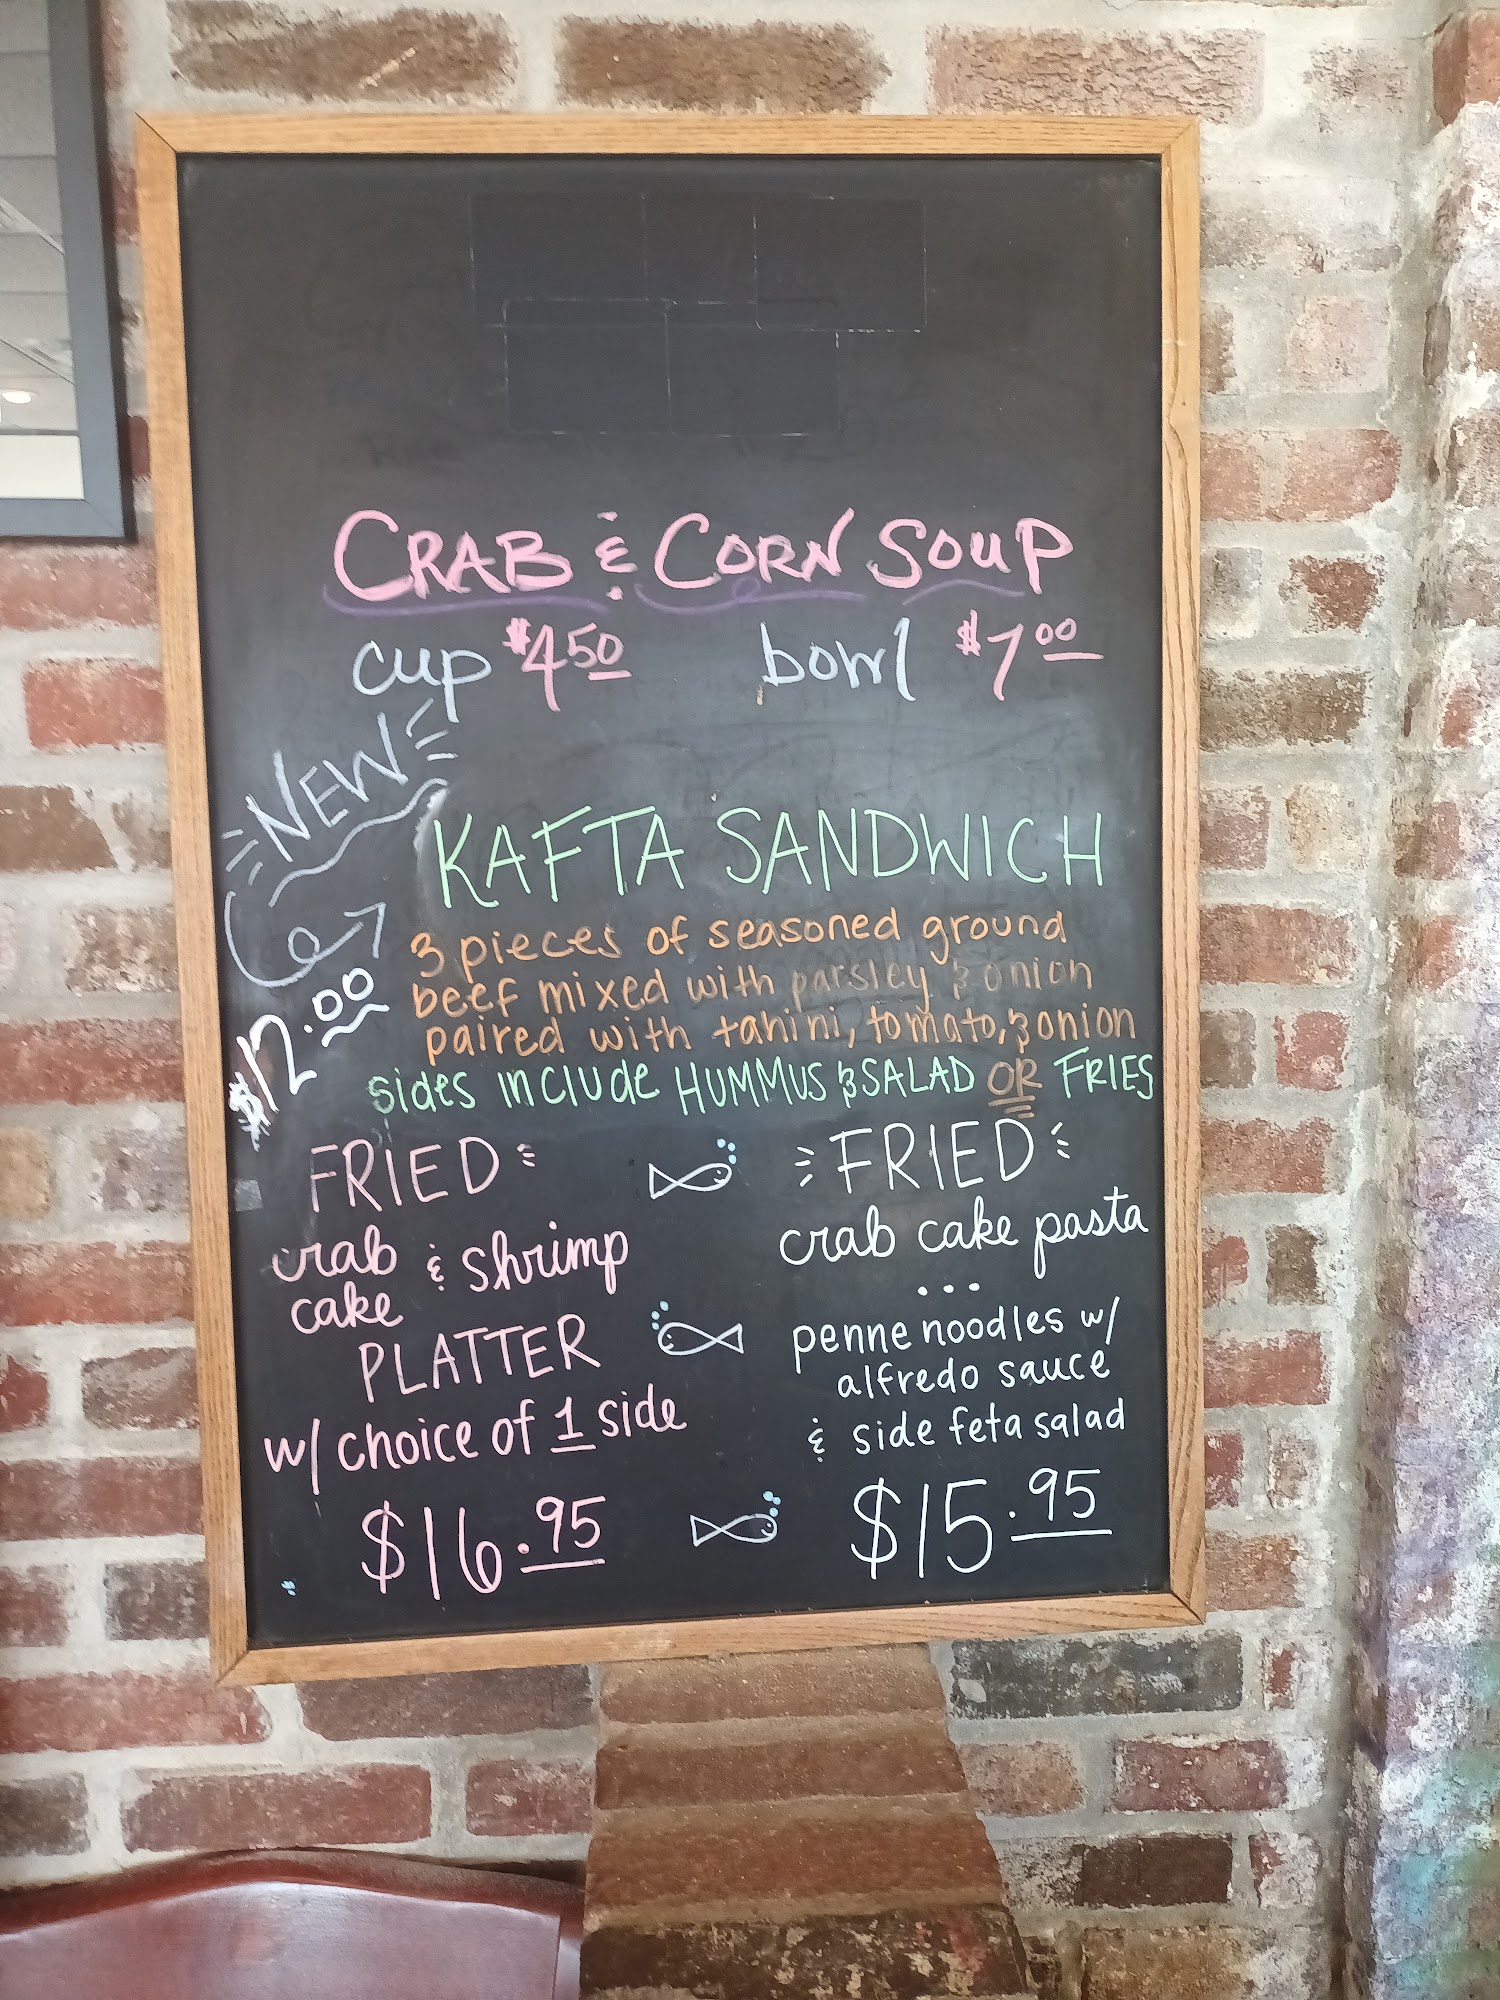 CRAB & CORN SOUP
cup $4.50 bowl $7.00
NEW
KAFTA SANDWICH
3 pieces of seasoned ground
beef mixed with parsley & onion
paired with tahini, tomato, & onion
$12.00
sides include HUMMUS & SALAD OR FRIES
FRIED
crab cake & shrimp
PLATTER
w/ choice of 1 side
$16.95
FRIED
crab cake pasta
...
penne noodles w/
alfredo sauce
& side feta salad
$15.95